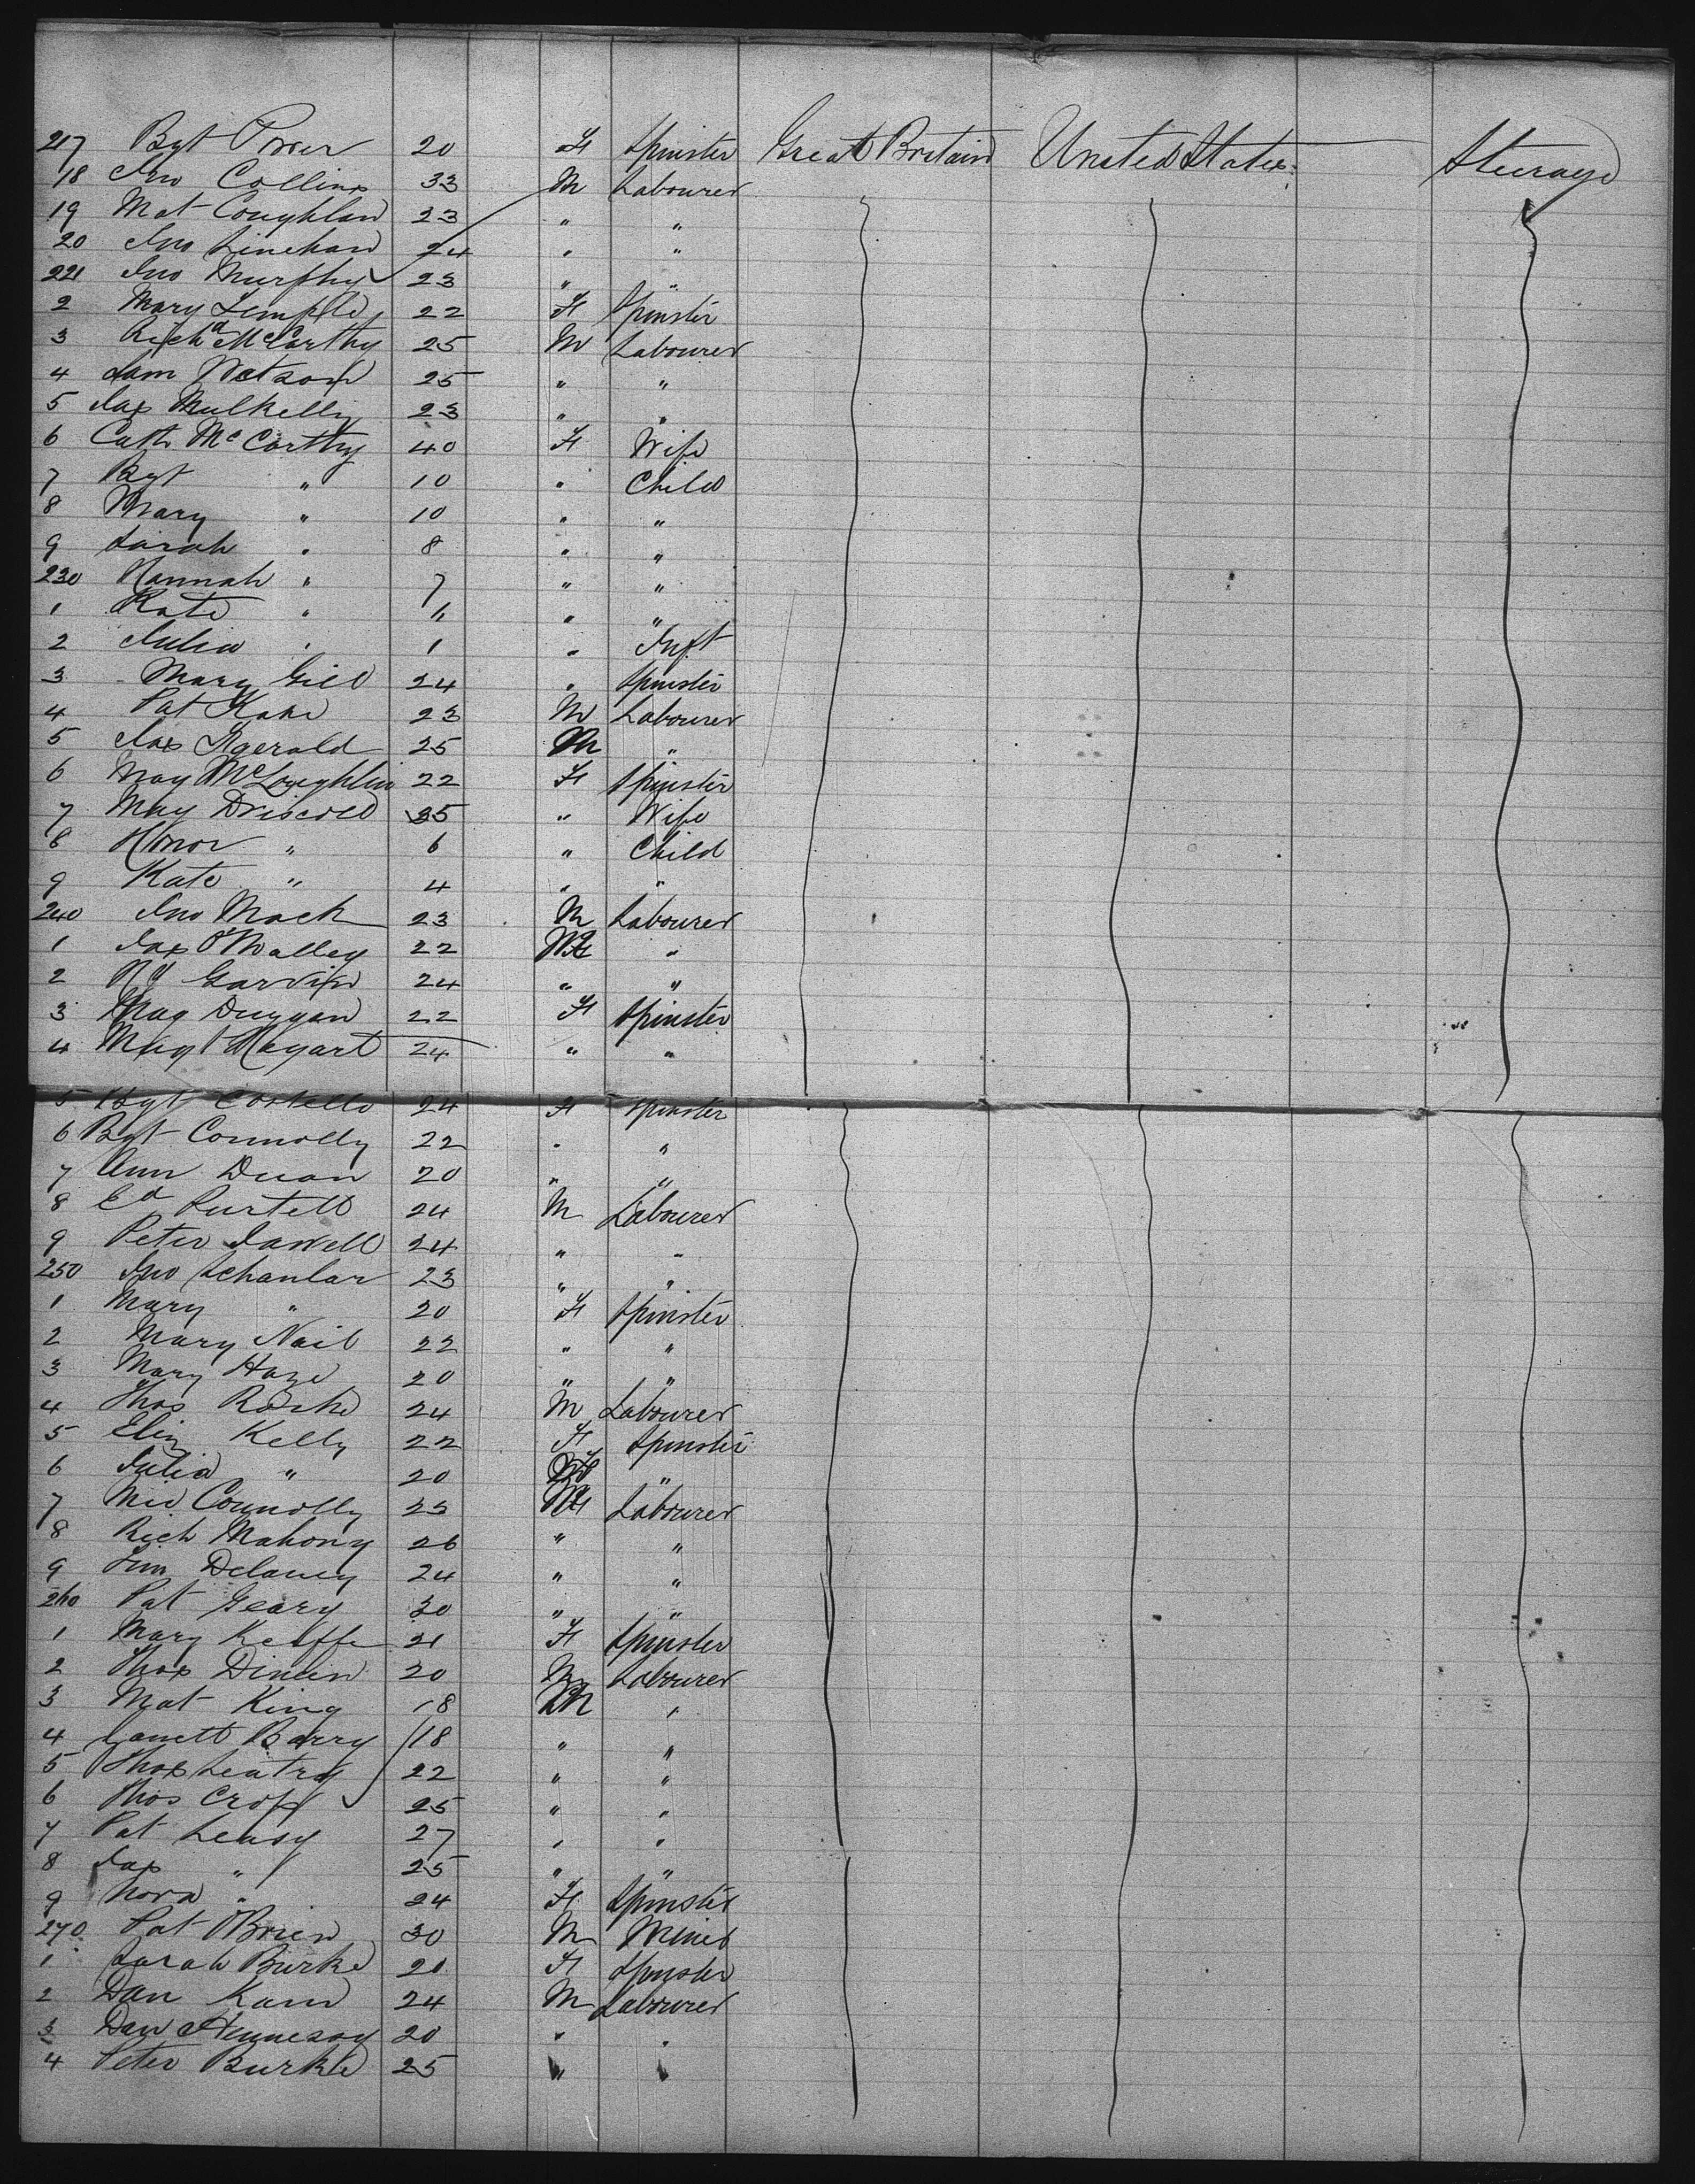 217 Bgt Power 20 F Spinster Great Britain United States Steerage
18 Jno Collins 33 M Labourer
19 Mat Coughlan 23 " "
20 Jno Linehan 24 " "
221 Jno Murphy 23 " "
2 Mary Temple 22 F Spinster
3 Richd McCarthy 25 M Labourer
4 Sam Watson 25 " "
5 Jas Mulkelly 23 " "
6 Cath McCarthy 40 F Wife
7 Bgt " 10 " Child
8 Mary " 10 " "
9 Sarah " 8 " "
230 Hannah " 7 " "
1 Kate " " "
2 Julia " 1 " Inft
3 Mary Gill 24 " Spinster
4 Pat Kane 23 M Labourer
5 Jas Fgerald 25 M "
6 May McLoughlin 22 F Spinster
7 May Driscoll 35 " Wife
8 Honor " 6 " Child
9 Kate " 4 " "
240 Jno Mack 23 M Labourer
1 Jas O'Malley 22 M "
2 Garvin 24 " "
3 Mag Duggan 22 F Spinster
4 Magt 24 " "
5 Bgt Costello 24 F Spinster
6 Bgt Connolly 22 " "
7 Ann Duan 20 " "
8 Ed Purtell 24 M Labourer
9 Peter 24 " "
250 Jno Schanlar 23 " "
1 Mary " 20 F Spinster
2 Mary Nail 22 " "
3 Mary Haze 20 " "
4 Thos Roche 24 M Labourer
5 Eliz Kelly 22 F Spinster
6 Julia " 20 F "
7 Mic Connolly 25 M Labourer
8 Rich Mahony 26 " "
9 Tim Delaney 24 " "
260 Pat Geary 30 " "
1 Mary Keaffe 21 F Spinster
2 Thos Dineen 20 M Labourer
3 Mat King 18 M "
4 Garrett Barry 18 " "
5 Thos 22 " "
6 Thos Cross 25 " "
7 Pat Leasy 27 " "
8 Jas " 25 " "
9 Nora " 24 F Spinster
270 Pat O'Brien 30 M Miner
1 Sarah Burke 20 F Spinster
2 Dan Kane 24 M Labourer
3 Dan Hennessy 20 " "
4 Peter Burke 25 " "